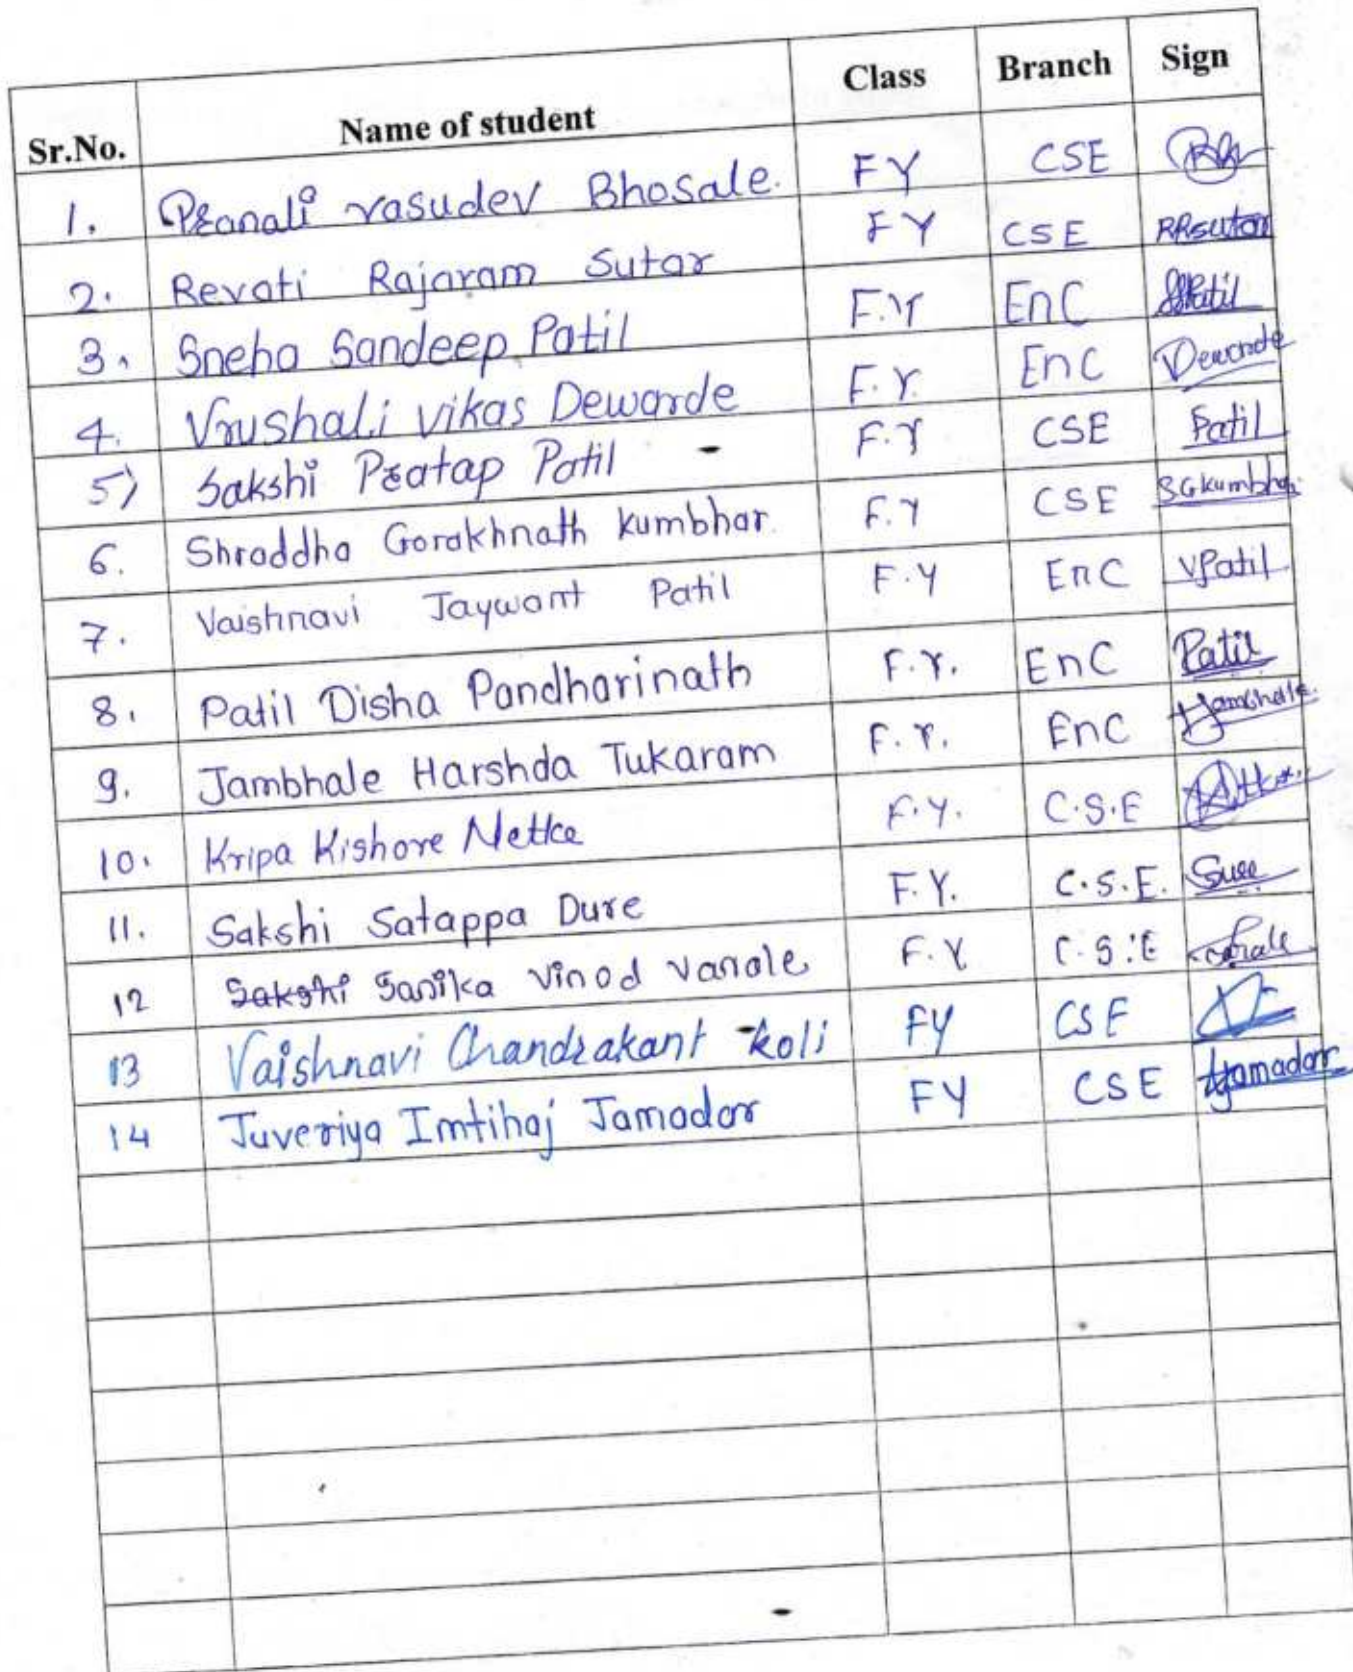 Sr.No. Name of student Class Branch Sign
1. Pranali vasudev Bhosale. FY CSE
2. Revati Rajaram Sutar FY CSE RRSutar
3. Sneha Sandeep Patil F.Y EnC SSPatil
4. Vrushali vikas Dewarde F.Y. EnC Dewarde
5) Sakshi Pratap Patil F.Y CSE Patil
6. Shraddha Gorakhnath Kumbhar. F.Y CSE SGKumbhar
7. Vaishnavi Jaywant Patil F.Y EnC VPatil
8. Patil Disha Pandharinath F.Y. EnC Patil
9. Jambhale Harshda Tukaram F.Y. EnC Jambhale.
10. Kripa Kishore Netke F.Y. C.S.E
11. Sakshi Satappa Dure F.Y. C.S.E.
12 Sakshi Sanika Vinod Varale F.Y C.S.E
13 Vaishnavi Chandrakant koli FY CSE
14 Juveriya Imtihaj Jamadar FY CSE Jamadar